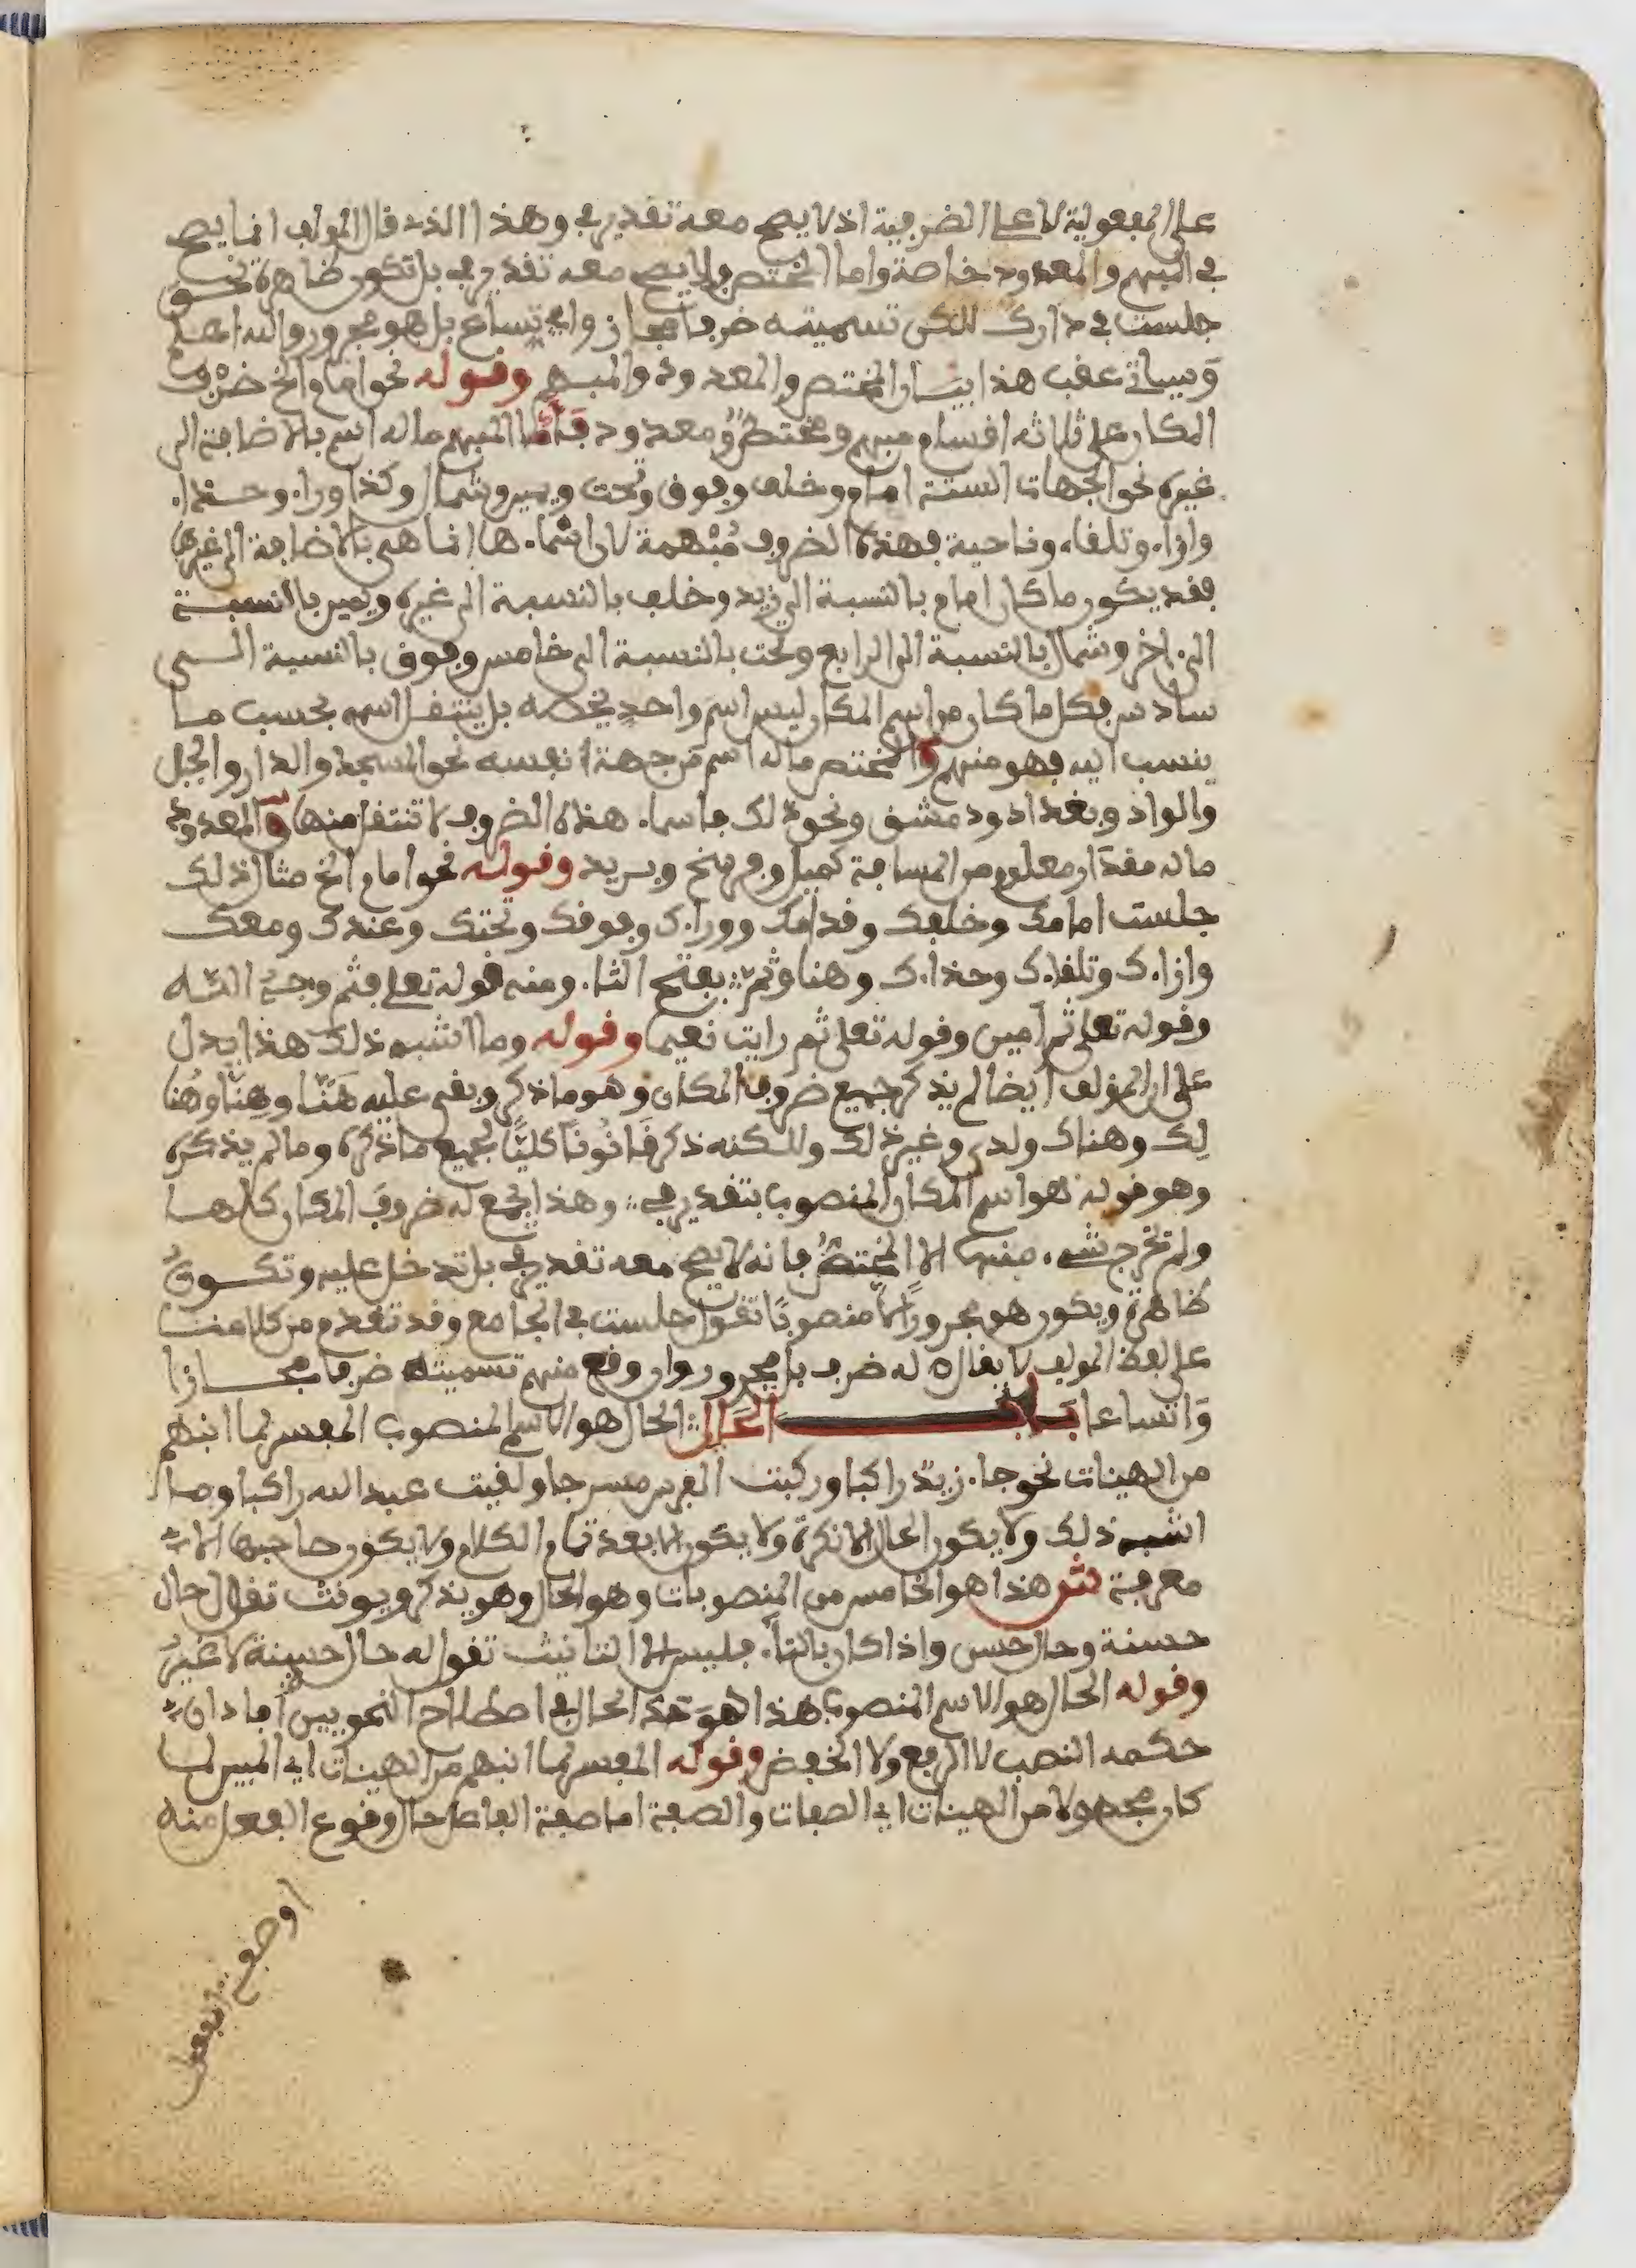 على المفعولية لا على الضرفية اذ لا يصح معه تقدير في وهذا الذي قال المولف انما يصح
في المبهم والمعدود خاصة واما المختص فلا يصح معه تقدير في بل تكون ظاهرة نحو
جلست في دارك لكن تسميته ضرفا مجاز واتساع بل هو مجرور والله اعلم
وسياتي عقب هذا بيان المختص والمعدود والمبهم وقوله نحو امام الخ ضرف
المكان على ثلاثه اقسام مبهم ومختص ومعدود فاما المبهم ما له اسم بالاضافة الى
غيره نحو الجهات الستة امام وخلف وفوق وتحت ويمين وشمال وكذا وراء وحذاء
وازاء وتلقاء وناحية فهذه الضروف مبهمة لان اسماءها انما هي بالاضافة الى غيرها
فقد يكون ما كان امام بالنسبة الى زيد وخلف بالنسبة الى غيره ويمين بالنسبة
الى اخر وشمال بالنسبة الى الرابع وتحت بالنسبة الى خامس وفوق بالنسبة الى
سادس فكل ما كان من اسم المكان ليس اسم واحد يخصه بل ينتقل اسمه بحسب ما
ينسب اليه فهو مبهم والمختص ما له اسم من جهة نفسه نحو المسجد والدار والجبل
والواد وبغداد ودمشق ونحو ذلك فاسماء هذه الضروف لا تنتقل منها والمعدود
ما له مقدار معلوم من المسافة كميل وفرسخ وبريد وقوله نحو امام الخ مثال ذلك
جلست امامك وخلفك وقدامك ووراءك وفوقك وتحتك وعندك ومعك
وازاءك وتلقاءك وحذاءك وهنا وثم بفتح الثاء ومنه قوله تعلى فثم وجه الله
وقوله تعلى ثم امين وقوله تعلى ثم رايت نعيما وقوله وما اشبه ذلك هذا يدل
على ان المؤلف ايضا لم يذكر جميع ضروف المكان وهو ما ذكر وبقي عليه هَنّا وهِنّا وهُنا
لك وهناك ولدى وغير ذلك ولكنه ذكر قانونا كليّا لجميع ما ذكره وما لم يذكره
وهو قوله هو اسم المكان المنصوب بتقدير في وهذا يجمع له ضروف المكان كلها
ولم تخرج شيء منها الا المختص فانه لا يصح معه تقدير في بل تدخل عليه وتكون
ظاهرة ويكون هو مجرورا لا منصوبا تقول جلست في الجامع وقد تقدم من كلامنا
على لفظ المولف لا يقال له ضرف بل مجرور وان وقع منهم تسميته ضرفا مجازا
واتساعا باب الحال الحال هو الاسم المنصوب المفسر لما انبهم
من الهيئات نحو جاء زيد راكبا وركبت الفرس مسرجا ولقيت عبد الله راكبا وما
اشبه ذلك ولا يكون الحال الا نكرة ولا يكون الا بعد تمام الكلام ولا يكون صاحبها الا
معرفة ش هذا هو الخامس من المنصوبات وهو الحال وهو يذكر ويونث تقول حال
حسنة وحال حسن واذا كان بالتاء فليس الا التانيث تقول حالة حسنة لا غير
وقوله الحال هو الاسم المنصوب هذا هو حد الحال في اصطلاح النحويين افاد ان
حكمه النصب لا الرفع ولا الخفض وقوله المفسر لما انبهم من الهيئات اي المبين لما
كان مجهولا من الهيئات اي الصفات والصفة اما صفة الفاعل حال وقوع الفعل منه